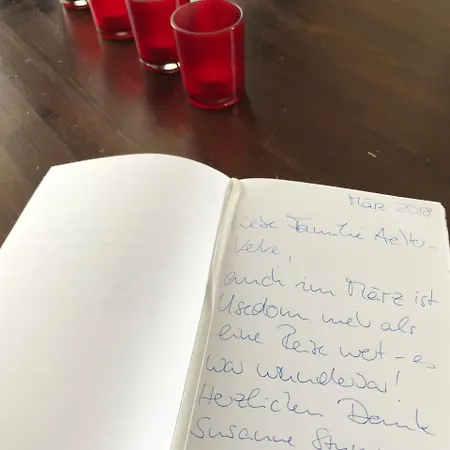 März 2018
Liebe Familie
auch im März ist
Usedom meh als
eine Reise wert - es
war wunderbar!
Herzlichen Dank
Susanne